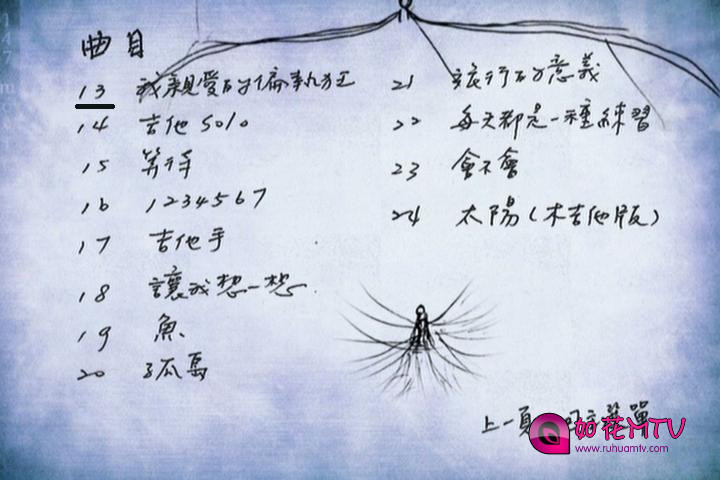 曲目
13 我親愛的偏執狂
14 吉他 solo
15 等待
16 1234567
17 吉他手
18 讓我想一想
19 魚
20 孤島
21 旅行的意義
22 每天都是一種練習
23 會不會
24 太陽(木吉他版)
上一頁 選單
如花MTV
www.ruhuamtv.com